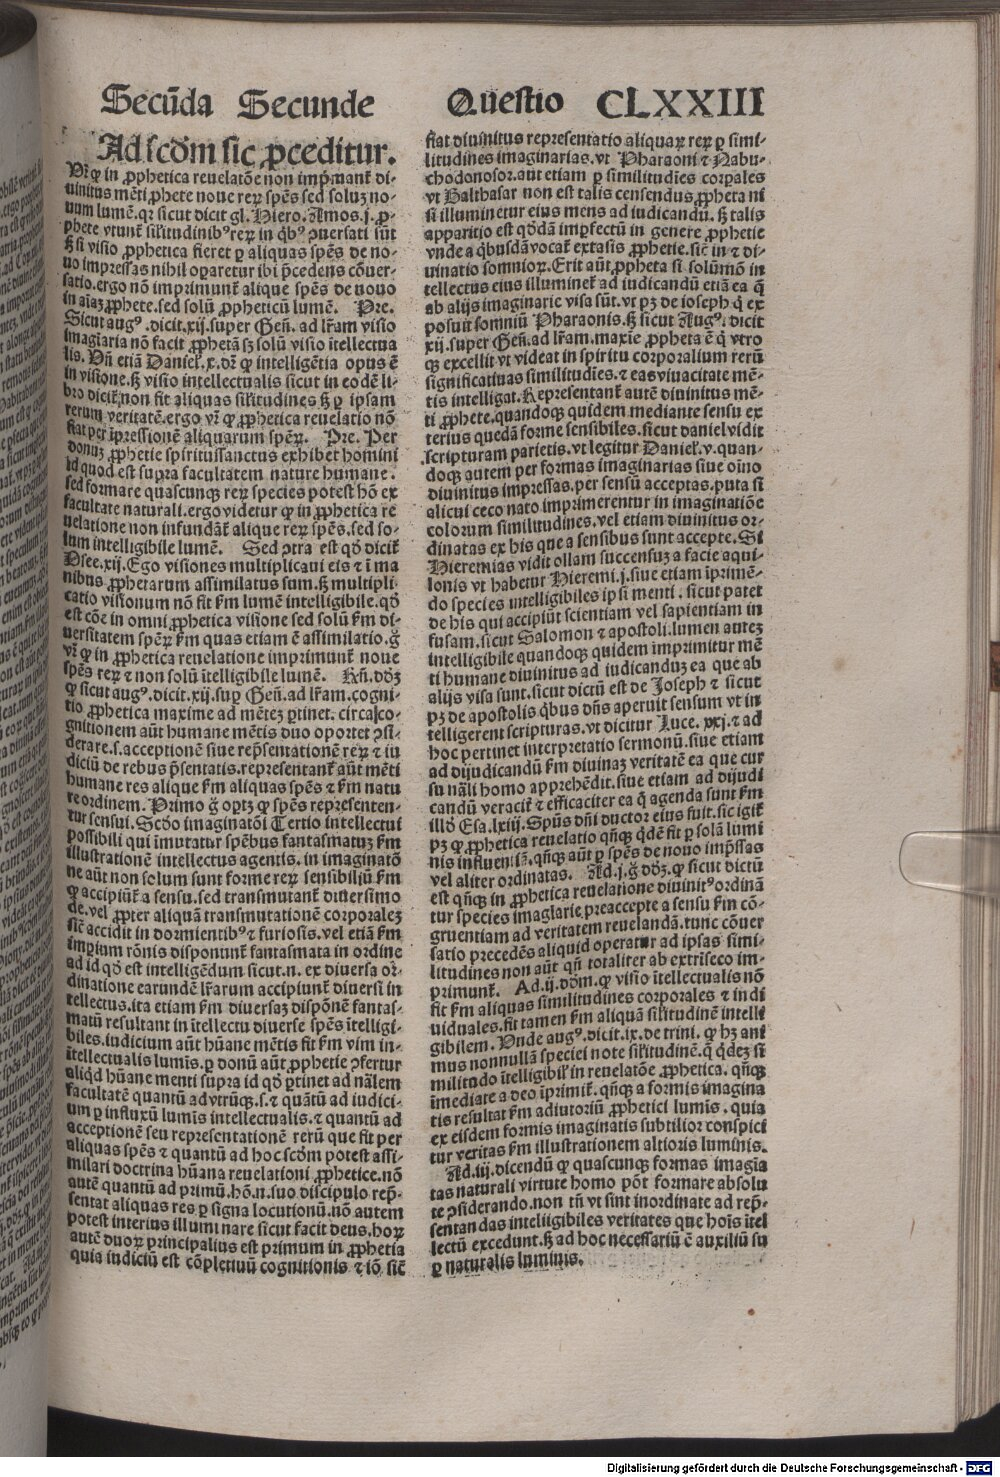 Secũda Secunde
Questio CLXXIII
Ad scðm sic ꝓceditur.
Vr̄ ꝙ in ꝓphetica reuelatõe non imp̃mant̃ di-
uinitus mẽti ꝓhete noue reꝝ spẽs sed soluʒ no-
uum lumẽ. qr̃ sicut dicit gl. Hiero. Amos. j. ꝓ-
phete vtunt̃ sil̃itudinibꝰ reꝝ in q̇bꝰ ꝯuersati sũt
ß si visio ꝓphetica fieret ꝑ aliquas spẽs de no-
uo impressas nihil oꝑaretur ibi p̃cedens cõuer-
satio. ergo nõ imprimunt̃ alique spẽs de nouo
in aĩaʒ ꝓphete. sed solũ ꝓpheticũ lumẽ. Pre.
Sicut augꝰ. dicit. xij. super Geñ. ad lr̃am visio
imagĩaria nõ facit ꝓphetã sʒ solũ visio ĩtellectua
lis. Vñ etiã Daniel̃. x. dr̃ ꝙ intelligẽtia opus ẽ
in visione. ß visio intellectualis sicut in eodẽ li-
bro dicit̃ non fit aliquas sil̃itudines ß ꝑ ipsam
rerum veritatẽ. ergo vr̃ ꝙ ꝓphetica reuelatio nõ
fiat per ĩpressionẽ aliquarum speꝝ. Pre. Per
donuʒ ꝓphetie spiritussanctus exhibet homini
id quod est supra facultatem nature humane.
sed formare quascunqʒ reꝝ species potest hõ ex
facultate naturali. ergo videtur ꝙ in ꝓphetica re
uelatione non infundãt̃ alique reꝝ spẽs. sed so-
lum intelligibile lumẽ. Sed ꝯtra est qð dicit̃
Osee. xij. Ego visiones multiplicaui eis ⁊ ĩ ma
nibus ꝓphetarum assimilatus sum. ß multipli
catio visionum nõ fit ẜm lumẽ intelligibile. qð
est cõe in omni ꝓphetica visione sed solũ ẜm di-
uersitatem speꝝ ẜm quas etiam ẽ assimilatio. g̃
vr̃ ꝙ in ꝓphetica reuelatione imprimunt̃ noue
spẽs reꝝ ⁊ non solũ ĩtelligibile lumẽ. Rñ. dðʒ
ꝙ sicut augꝰ. dicit. xij. suꝑ Geñ. ad lr̃am. cogni-
tio ꝓphetica maxime ad mẽteʒ ꝑtinet. circa co-
gnitionem aũt humane mẽtis duo oportet ꝯsi-
derare. s. acceptionẽ siue rep̃sentationẽ reꝝ ⁊ iu
diciũ de rebus p̃sentatis. representant̃ aũt mẽti
humane res alique ẜm aliquas spẽs ⁊ ẜm natu
re ordinem. Primo g̃ optʒ ꝙ spẽs representen-
tur sensui. Scðo imaginatõi Tertio intellectui
possibili qui ĩmutatur spẽbus fantasmatuʒ ẜm
illustrationẽ intellectus agentis. in imaginatõ
ne aũt non solum sunt forme reꝝ sensibiliũ ẜm
ꝙ accipiũt̃ a sensu. sed transmutant̃ diuersimo
de. vel ꝓpter aliquã transmutationẽ corporaleʒ
sic̃ accidit in dormientibꝰ ⁊ furiosis. vel etiã ẜm
imꝑium rõnis disponunt̃ fantasmata in ordine
ad id qð est intelligẽdum sicut. n. ex diuersa or-
dinatione earundẽ lr̃arum accipiunt̃ diuersi in
tellectus. ita etiam ẜm diuersaʒ dispõnẽ fantas-
matũ resultant in ĩtellectu diuerse spẽs ĩtelligi-
biles. iudicium aũt hũane mẽtis fit ẜm vim in-
ĩtellectualis lumĩs. ꝑ donũ aũt ꝓphetie ꝯfertur
aliqð hũane menti supra id qð ꝑtinet ad nãlem
facultatẽ quantũ advtrũqʒ. s. ⁊ quãtũ ad iudici-
um ꝑ influxũ lumĩs intellectualis. ⁊ quantũ ad
acceptionẽ seu representationẽ rerũ que fit per
aliquas spẽs ⁊ quantũ ad hoc scðm potest assi-
milari doctrina hũana reuelationi ꝓphetice. nõ
autẽ quantũ ad primũ. hõ. n. suo discipulo rep̃-
sentat aliquas res ꝑ signa locutionũ. nõ autem
potest interius illuminare sicut facit deus. hoꝝ
autẽ duoꝝ principalius est primum in ꝓphetia
quia iudiciũ est cõpletiuũ cognitionis ⁊ iõ sic̃
fiat diuinitus representatio aliquaꝝ reꝝ ꝑ simi-
litudines imaginarias. vt Pharaoni ⁊ Nabu-
chodonosor. aut etiam ꝑ similitudĩes corꝑales
vt Balthasar non est talis censendus ꝓpheta ni
si illuminetur eius mens ad iudicandũ. ß talis
apparitio est qðdã imꝑfectũ in genere ꝓphetie
vnde a q̇busdã vocat̃ extasis ꝓphetie. sic̃ in ⁊ di-
uinatio somnioꝝ. Erit aũt ꝓpheta si solũmõ in
tellectus eius illuminet̃ ad iudicandũ etiã ea q̃
ab alijs imaginarie visa sũt. vt pʒ de ioseph q̇ ex
posuit somniũ Pharaonis. ß sicut Augꝰ. dicit
xij. super Geñ. ad lr̃am. maxĩe ꝓpheta ẽ q̇ vtro
qʒ excellit vt videat in spiritu corporalium rerũ
significatiuas similitudĩes. ⁊ eas viuacitate mẽ-
tis intelligat. Representant̃ autẽ diuinitus mẽ-
ti ꝓphete. quandoqʒ quidem mediante sensu ex
terius quedã forme sensibiles. sicut daniel vidit
scripturam parietis. vt legitur Daniel̃. v. quan-
doqʒ autem per formas imaginarias siue oĩno
diuinitus impressas. per sensũ acceptas. puta si
alicui ceco nato imprimerentur in imaginatiõe
colorum similitudines. vel etiam diuinitus or-
dinatas ex his que a sensibus sunt accepte. Si
Hieremias vidit ollam succensuʒ a facie aqui-
lonis vt habetur Hieremi. j. siue etiam ĩprimẽ-
do species intelligibiles ipsi menti. sicut patet
de his qui accipiũt scientiam vel sapientiam in
fusam. sicut Salomon ⁊ apostoli. lumen auteʒ
intelligibile quandoqʒ quidem imprimitur mẽ
ti humane diuinitus ad iudicanduʒ ea que ab
alijs visa sunt. sicut dictũ est de Joseph ⁊ sicut
pʒ de apostolis q̇bus dñs aperuit sensum vt in
telligerent scripturas. vt dicitur Luce. xxj. ⁊ ad
hoc pertinet interpretatio sermonũ. siue etiam
ad dijudicandũ ẜm diuinaʒ veritatẽ ea que cur
su nãli homo apprehẽdit. siue etiam ad dijudi
candũ veracit̃ ⁊ efficaciter ea q̃ agenda sunt ẜm
illð Esa. lxiij. Spũs dñi ductor eius fuit. sic igit̃
pʒ ꝙ ꝓphetica reuelatio qñqʒ q̇dẽ fit ꝑ solã lumi
nis influentiã. qñqʒ aũt ꝑ spẽs de nouo imp̃ssas
vel aliter ordinatas. Ad. j. g̃ dðʒ. ꝙ sicut dictũ
est qñqʒ in ꝓphetica reuelatione diuinitꝰ ordinã
tur species imagĩarie preaccepte a sensu ẜm cõ-
gruentiam ad veritatem reuelandã. tunc cõuer
satio precedẽs aliquid operatur ad ipsas simi-
litudines non aũt qñ totaliter ab extrĩseco im-
primunt̃. Ad. ij. dðm. ꝙ visio ĩtellectualis nõ
fit ẜm aliquas similitudines corporales ⁊ indi
uiduales. fit tamen ẜm aliquã silĩtudinẽ intelli
gibilem. Vnde augꝰ. dicit. ix. de trini. ꝙ hʒ ani
mus nonnullã speciei note sil̃itudinẽ. q̃ q̇deʒ si
militudo ĩtelligibil̃ in reuelatõe ꝓphetica. qñqʒ
ĩmediate a deo ĩprimit̃. qñqʒ a formis imagina
tis resultat ẜm adiutoriũ ꝓphetici lumĩs. quia
ex eisdem formis imaginatis subtilior conspici
tur veritas ẜm illustrationem altioris luminis.
Ad. iij. dicendũ ꝙ quascunqʒ formas imagĩa
tas naturali virtute homo põt formare absolu
te ꝯsiderando. non tñ vt sint inordinate ad rep̃-
sentandas inteliigibiles veritates que hoĩs ĩtel
lectũ excedunt. ß ad hoc necessariũ ẽ auxiliũ su
ꝑ naturalis luminis.
Digitalisierung gefördert durch die Deutsche Forschungsgemeinschaft - DFG